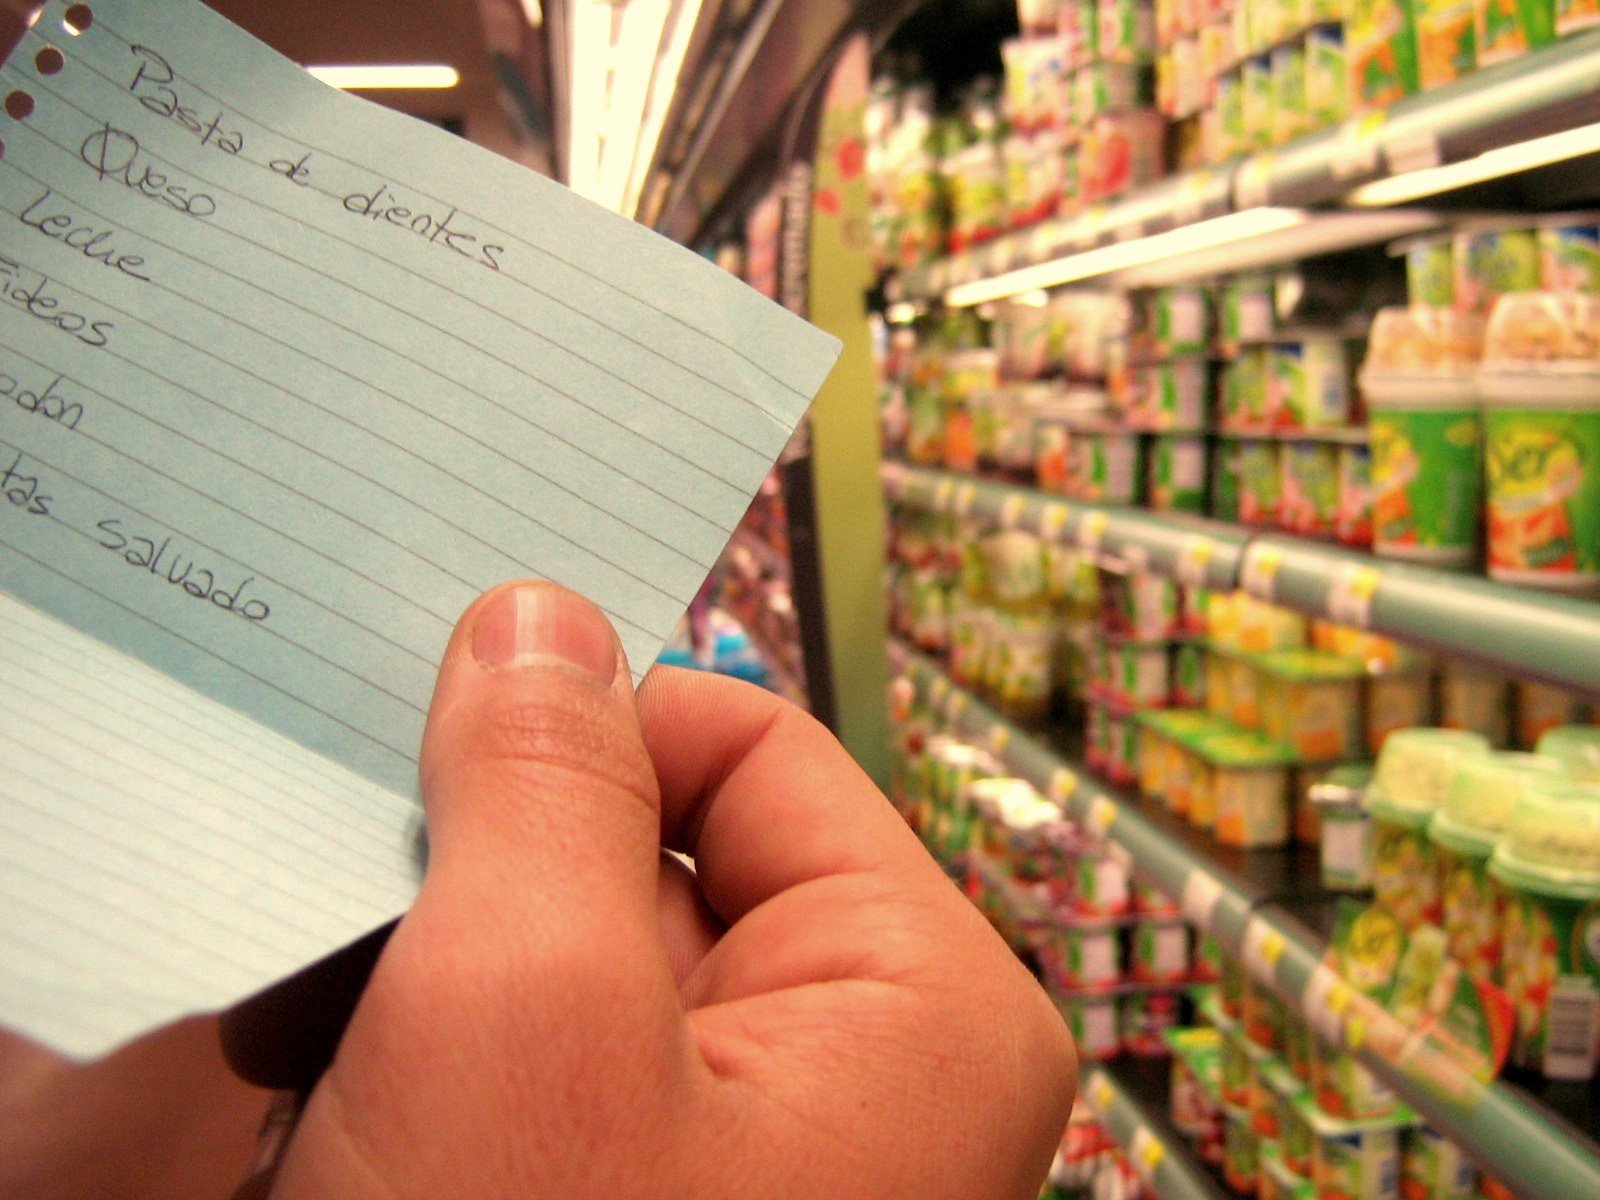 Pasta de dientes
Queso
Leche
Fideos
odon
tas salvado
Ser
Ser